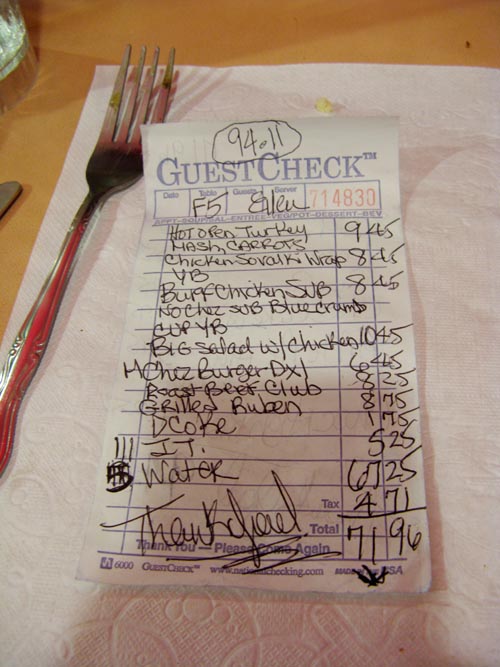 94.11
GUESTCHECK™
Date Table Guests Server
F5 Ellen 714830
APPT-SOUP/SAL-ENTREE-VEG/POT-DESSERT-BEV
HOT OPEN Turkey 9 45
MASH, CARROTS
Chicken Sovalki Wrap 8 45
YB
Buff Chicken SUB 8 45
NO Chez SUB Blue crumb
CUP YB
BIG Salad w/ Chicken 10 45
M Chez Burger DX/ 6 45
Roast Beef Club 8 25
Grilled Ruben 8 75
D COKE 1 75
III I.T. 5 25
Water 67 25
Tax 4 71
Thank you! Total 71 96
Thank You — Please Come Again
6000 GUESTCHECK™ www.nationalchecking.com MADE IN THE USA